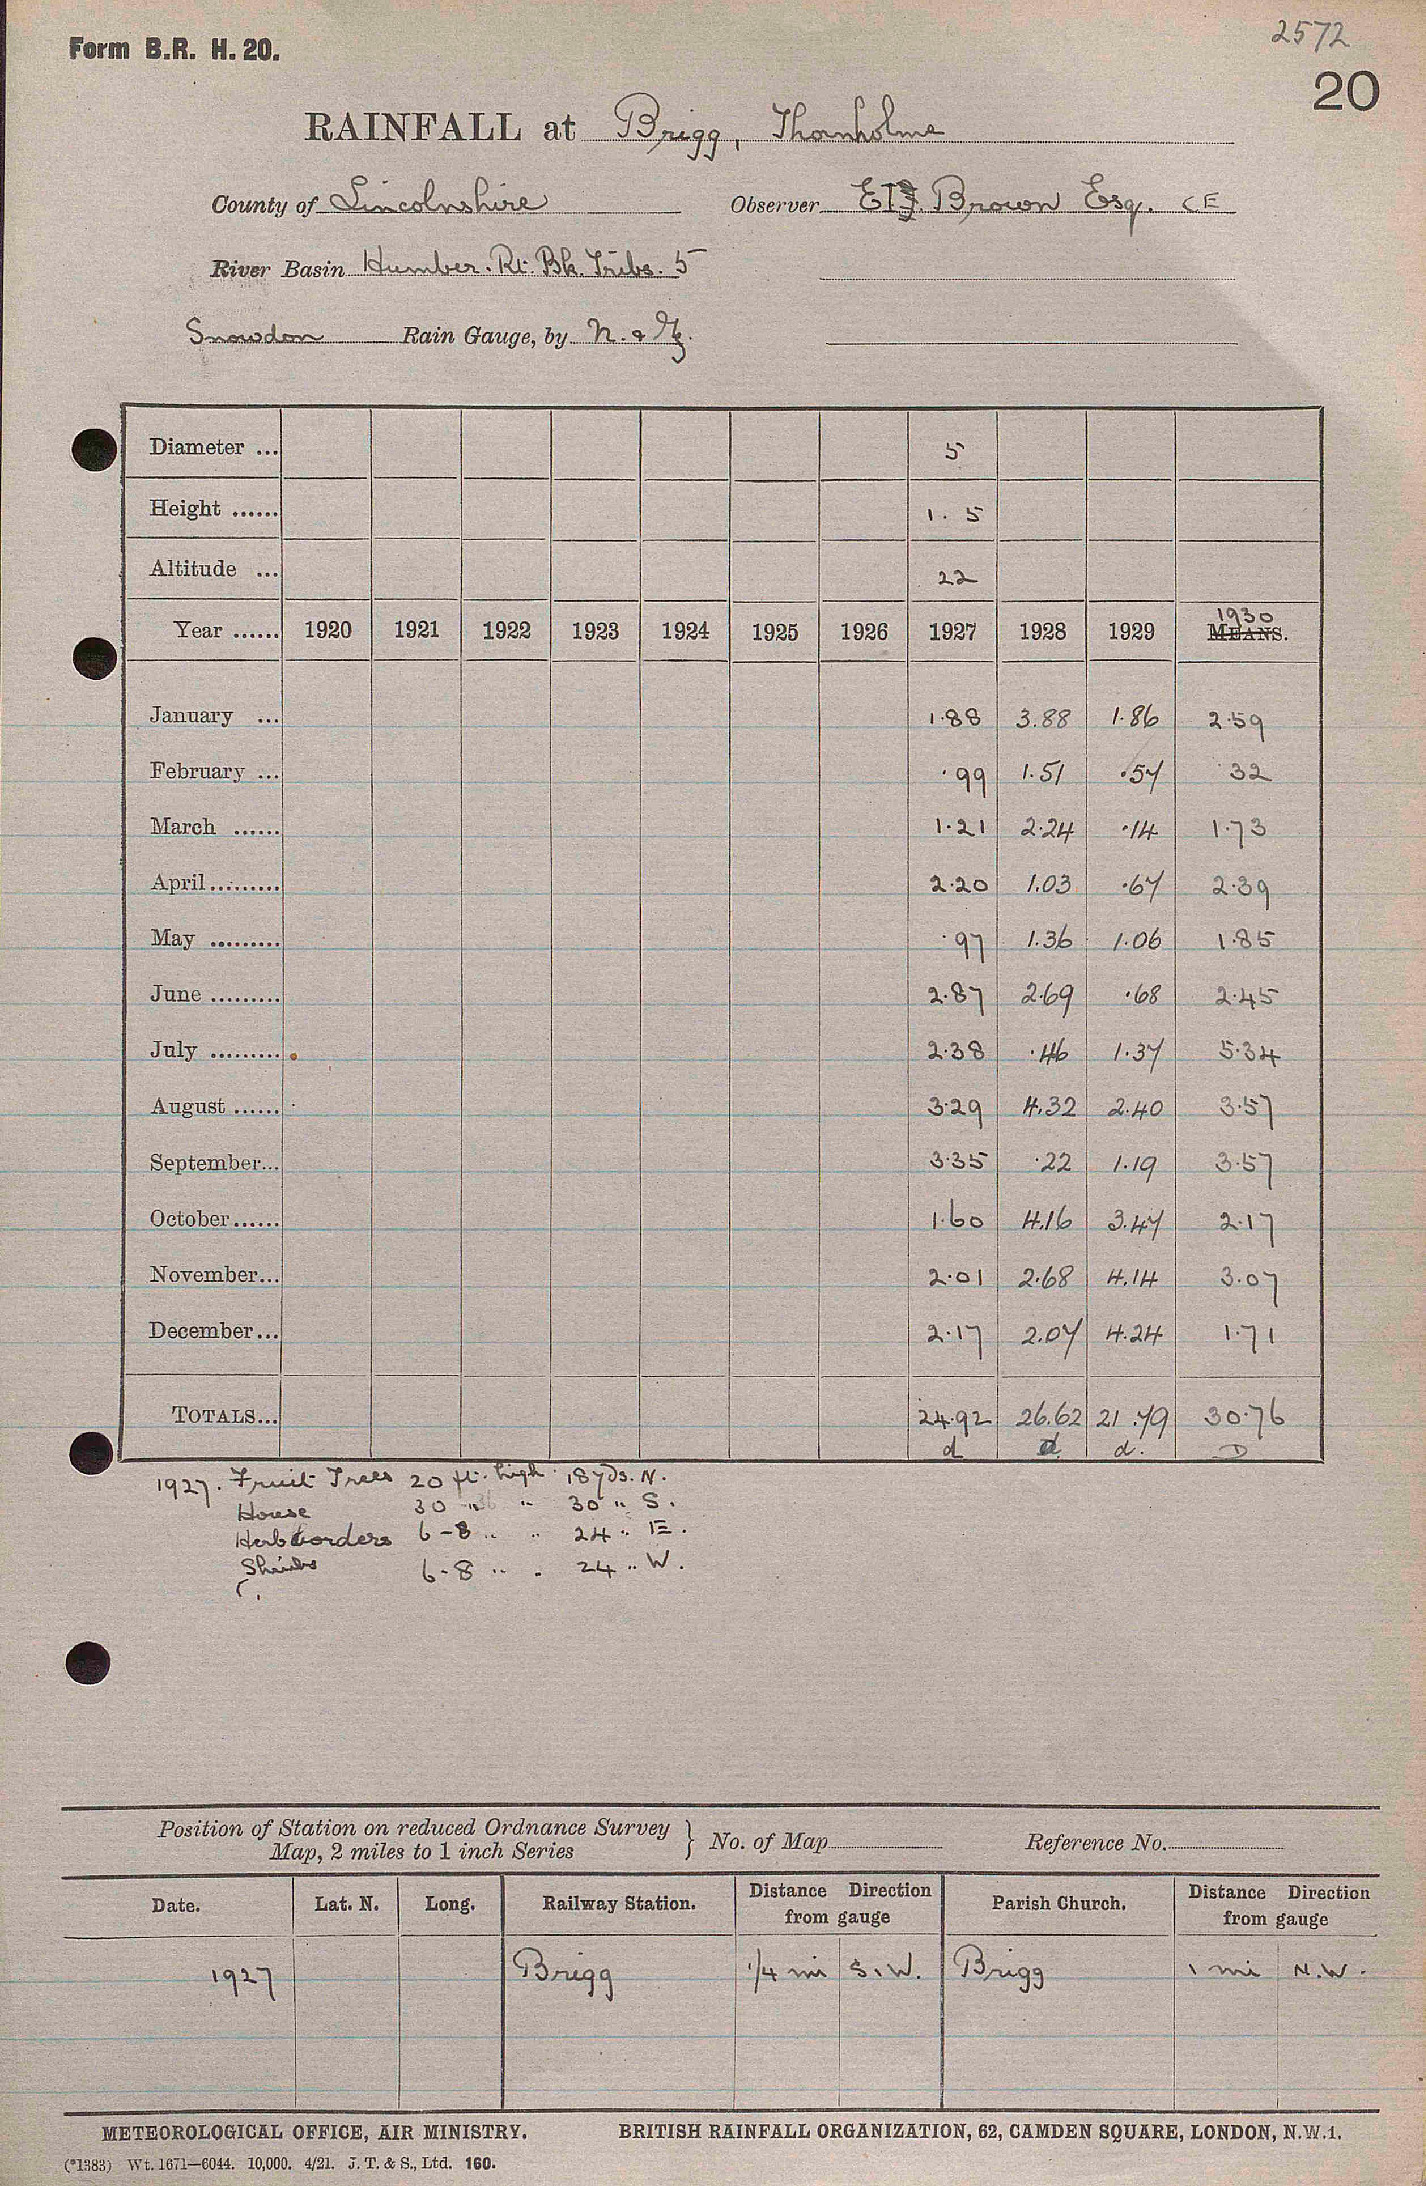 2572
Form B.R. H. 20.
20
RAINFALL at Brigg, Thornholme
County of Lincolnshire Observer Brown Esq. CE
River Basin Humber. Rt. Bk. Tribs. 5
Snowdon Rain Gauge, by N. & Z.
Diameter ... 5
Height ...... 1. 5
Altitude ... 22
1930
Year ...... 1920 1921 1922 1923 1924 1925 1926 1927 1928 1929 MEANS.
January ... 1.88 3.88 1.86 2.59
February ... .99 1.51 .57 .32
March ...... 1.21 2.24 .14 1.73
April......... 2.20 1.03 .67 2.39
May ......... .97 1.36 1.06 1.85
June ......... 2.87 2.69 .68 2.45
July ......... 2.38 .46 1.37 5.34
August ...... 3.29 4.32 2.40 3.57
September... 3.35 .22 1.19 3.57
October...... 1.60 4.16 3.47 2.17
November... 2.01 2.68 4.14 3.07
December... 2.17 2.07 4.24 1.71
TOTALS... 24.92 26.62 21.79 30.76
d d d. D
1927. Fruit Trees 20 ft. high 18 yds. N.
House 30 " " 30 " S.
Herb borders 6-8 " " 24 " E.
Shrubs 6-8 " " 24 " W.
Position of Station on reduced Ordnance Survey
Map, 2 miles to 1 inch Series } No. of Map Reference No.
Date. Lat. N. Long. Railway Station. Distance Direction from gauge Parish Church. Distance Direction from gauge
1927 Brigg 1/4 mi S.W. Brigg 1 mi N.W.
METEOROLOGICAL OFFICE, AIR MINISTRY. BRITISH RAINFALL ORGANIZATION, 62, CAMDEN SQUARE, LONDON, N.W.1.
(*1383) Wt. 1671—6044. 10,000. 4/21. J. T. & S., Ltd. 160.